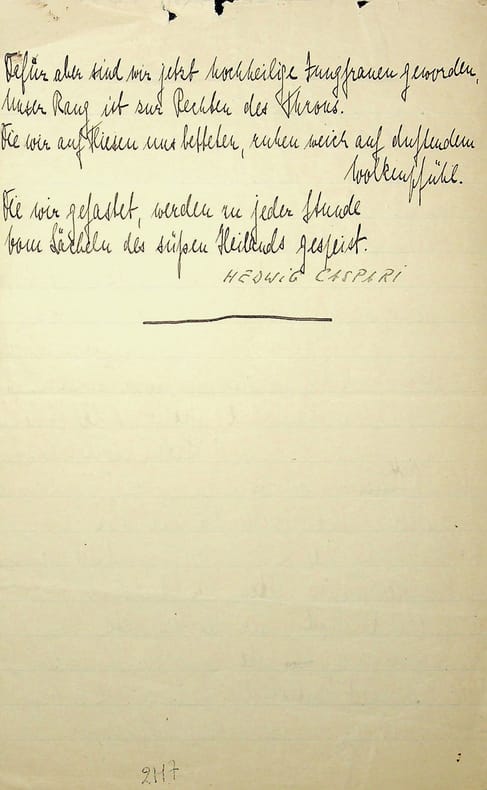 Dafür aber sind wir jetzt hochheilige Jungfrauen geworden,
Unser Rang ist zur Rechten des Throns.
Die wir auf Kiesen uns betteten, ruhen weich auf duftendem
Wolkenpfühl.
Die wir gefastet, werden zu jeder Stunde
vom Lächeln des süßen Heilands gespeist.
HEDWIG CASPARI
2117